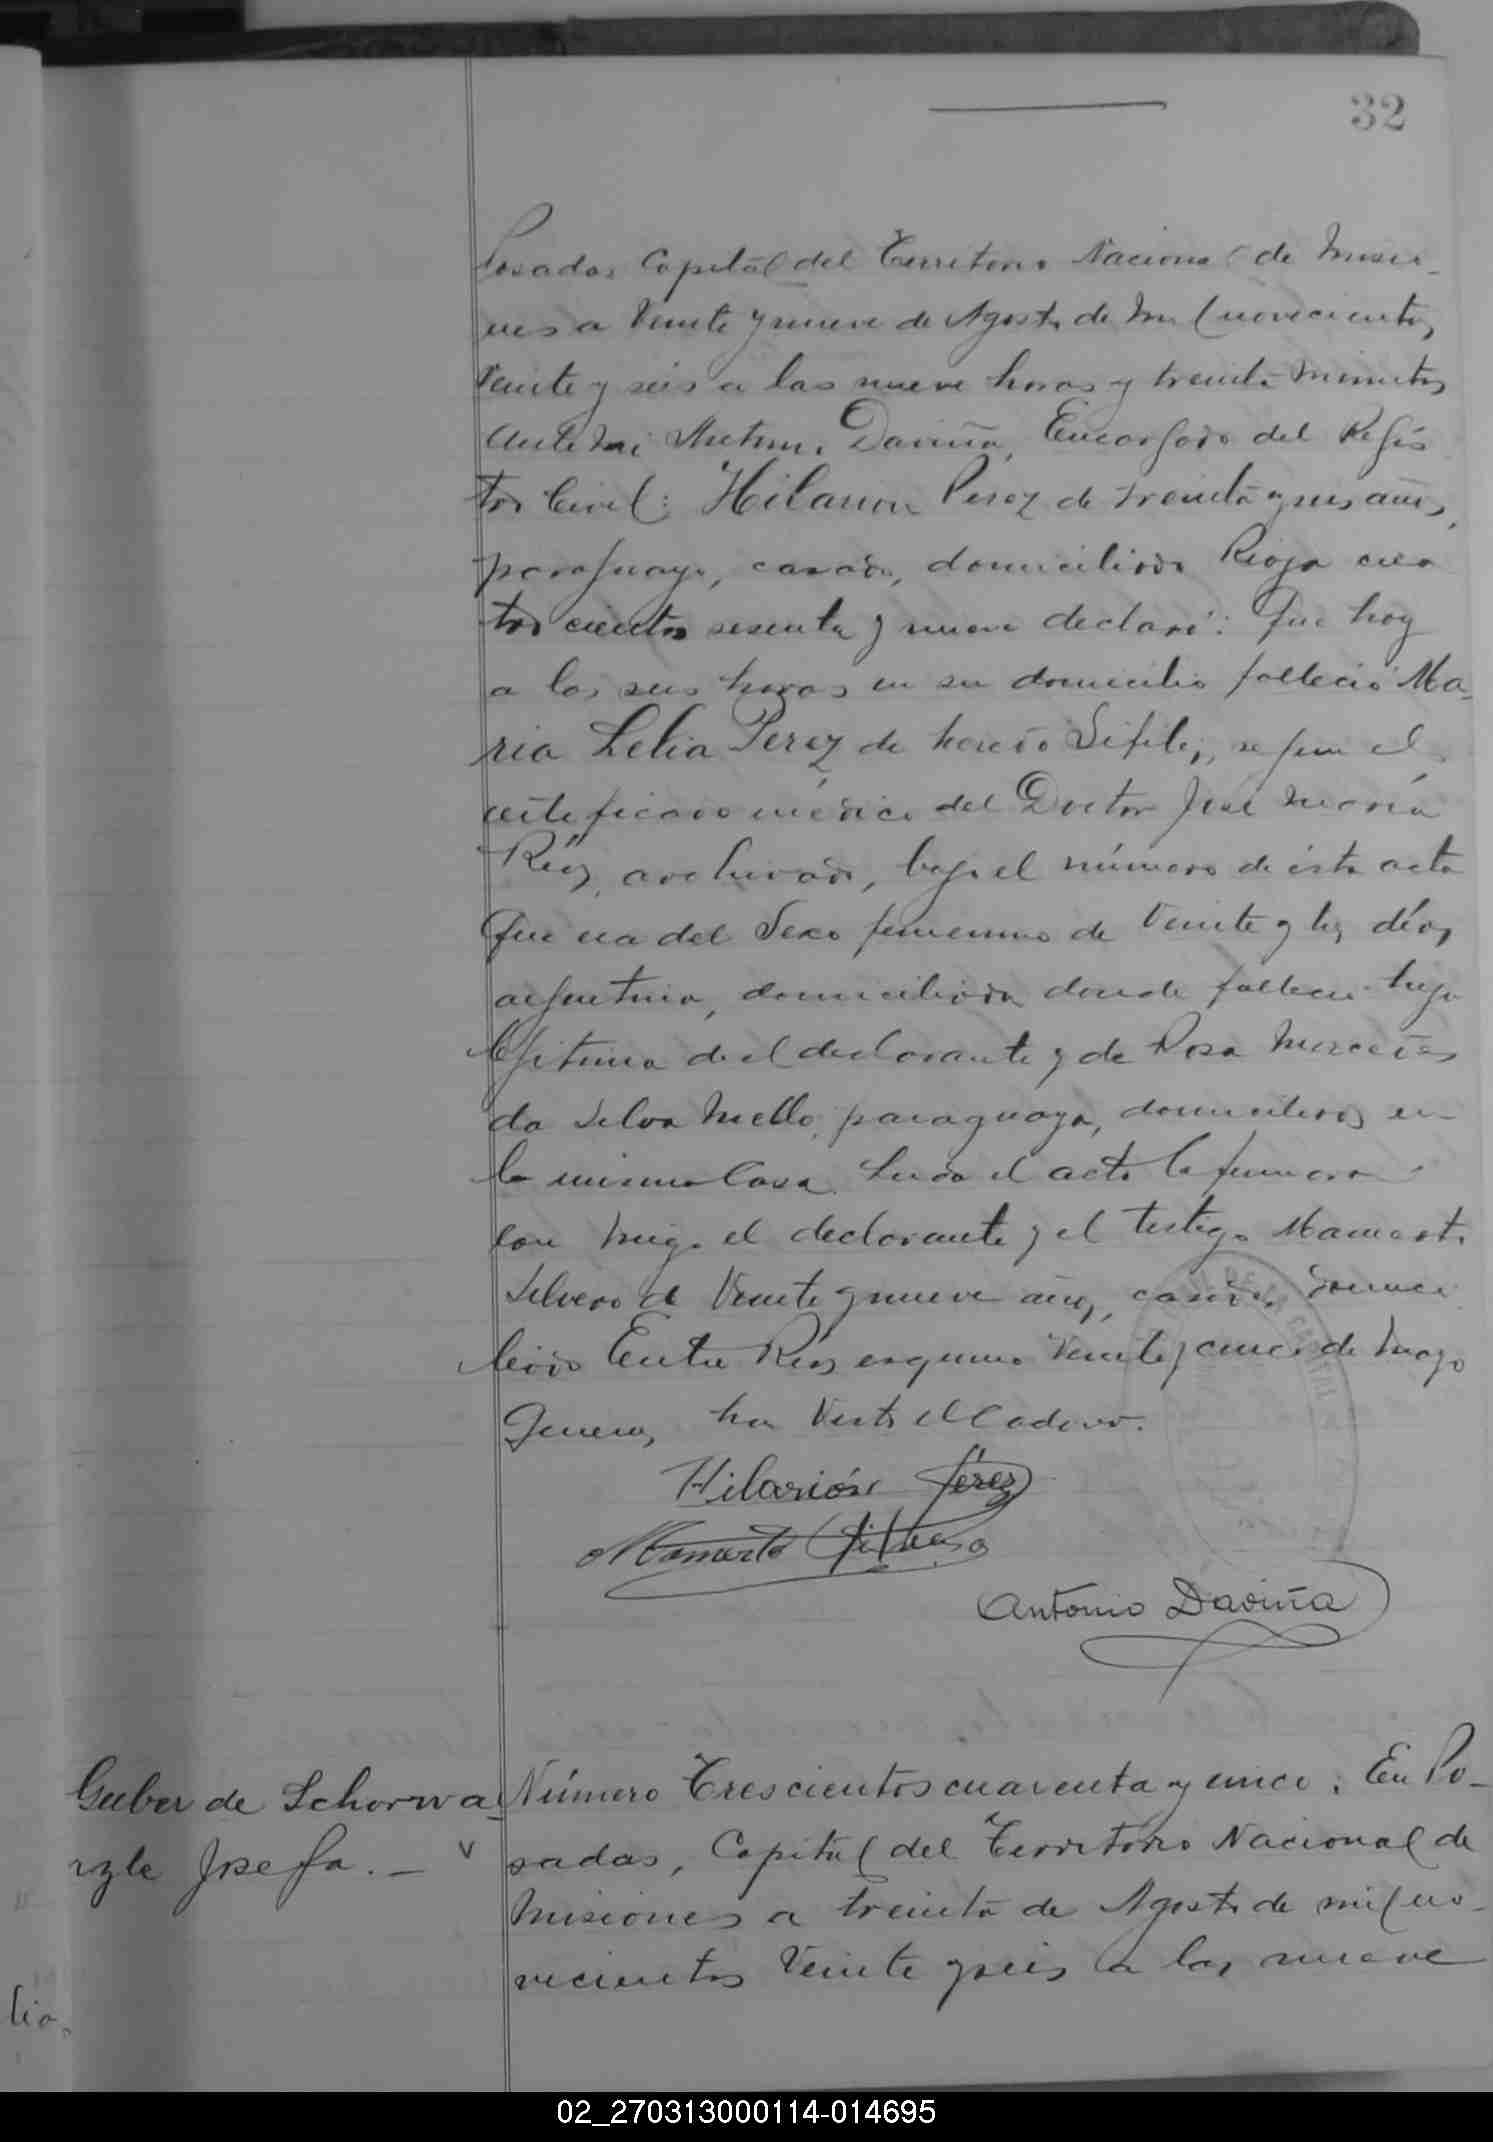 32
Posadas Capital del Territorio Nacional de Misio-
nes a Veinte y nueve de Agosto de mil novecientos
Veinte y seis a las nueve horas y treinta minutos
Ante mi Antonio Daviña, Encargado del Regis
tro Civil: Hilarion Perez de treinta y seis años,
paraguayo, casado, domiciliado Rioja cua
tro cientos sesenta y nueve declaró: Que hoy
a las seis horas en su domicilio falleció Ma-
ria Lelia Perez de heredo Sifilis, segun el
certificado médico del Doctor José María
Ríos, archivado, bajo el número de esta acta
Que era del Sexo femenino de Veinte y tres días,
argentina, domiciliada donde falleció hija
legitima del declarante y de Rosa Mercedes
da Silva Mello, paraguaya, domiciliados en
la misma Casa. Leida el acta la firmaron
con migo el declarante y el testigo Mamerto
Silvero de Veinte y nueve años, casado, domici
liado Entre Ríos esquina Veinte y cinco de Mayo
Quienes han Visto el Cadaver.
Hilarión Pérez
Mamerto Silvero
Antonio Daviña
Guber de Schorwa-
rzle Josefa. — v
Número Trescientos cuarenta y uno: En Po-
sadas, Capital del Territorio Nacional de
Misiones a treinta de Agosto de mil no-
vecientos Veinte y seis a las nueve
lia.
02_270313000114-014695